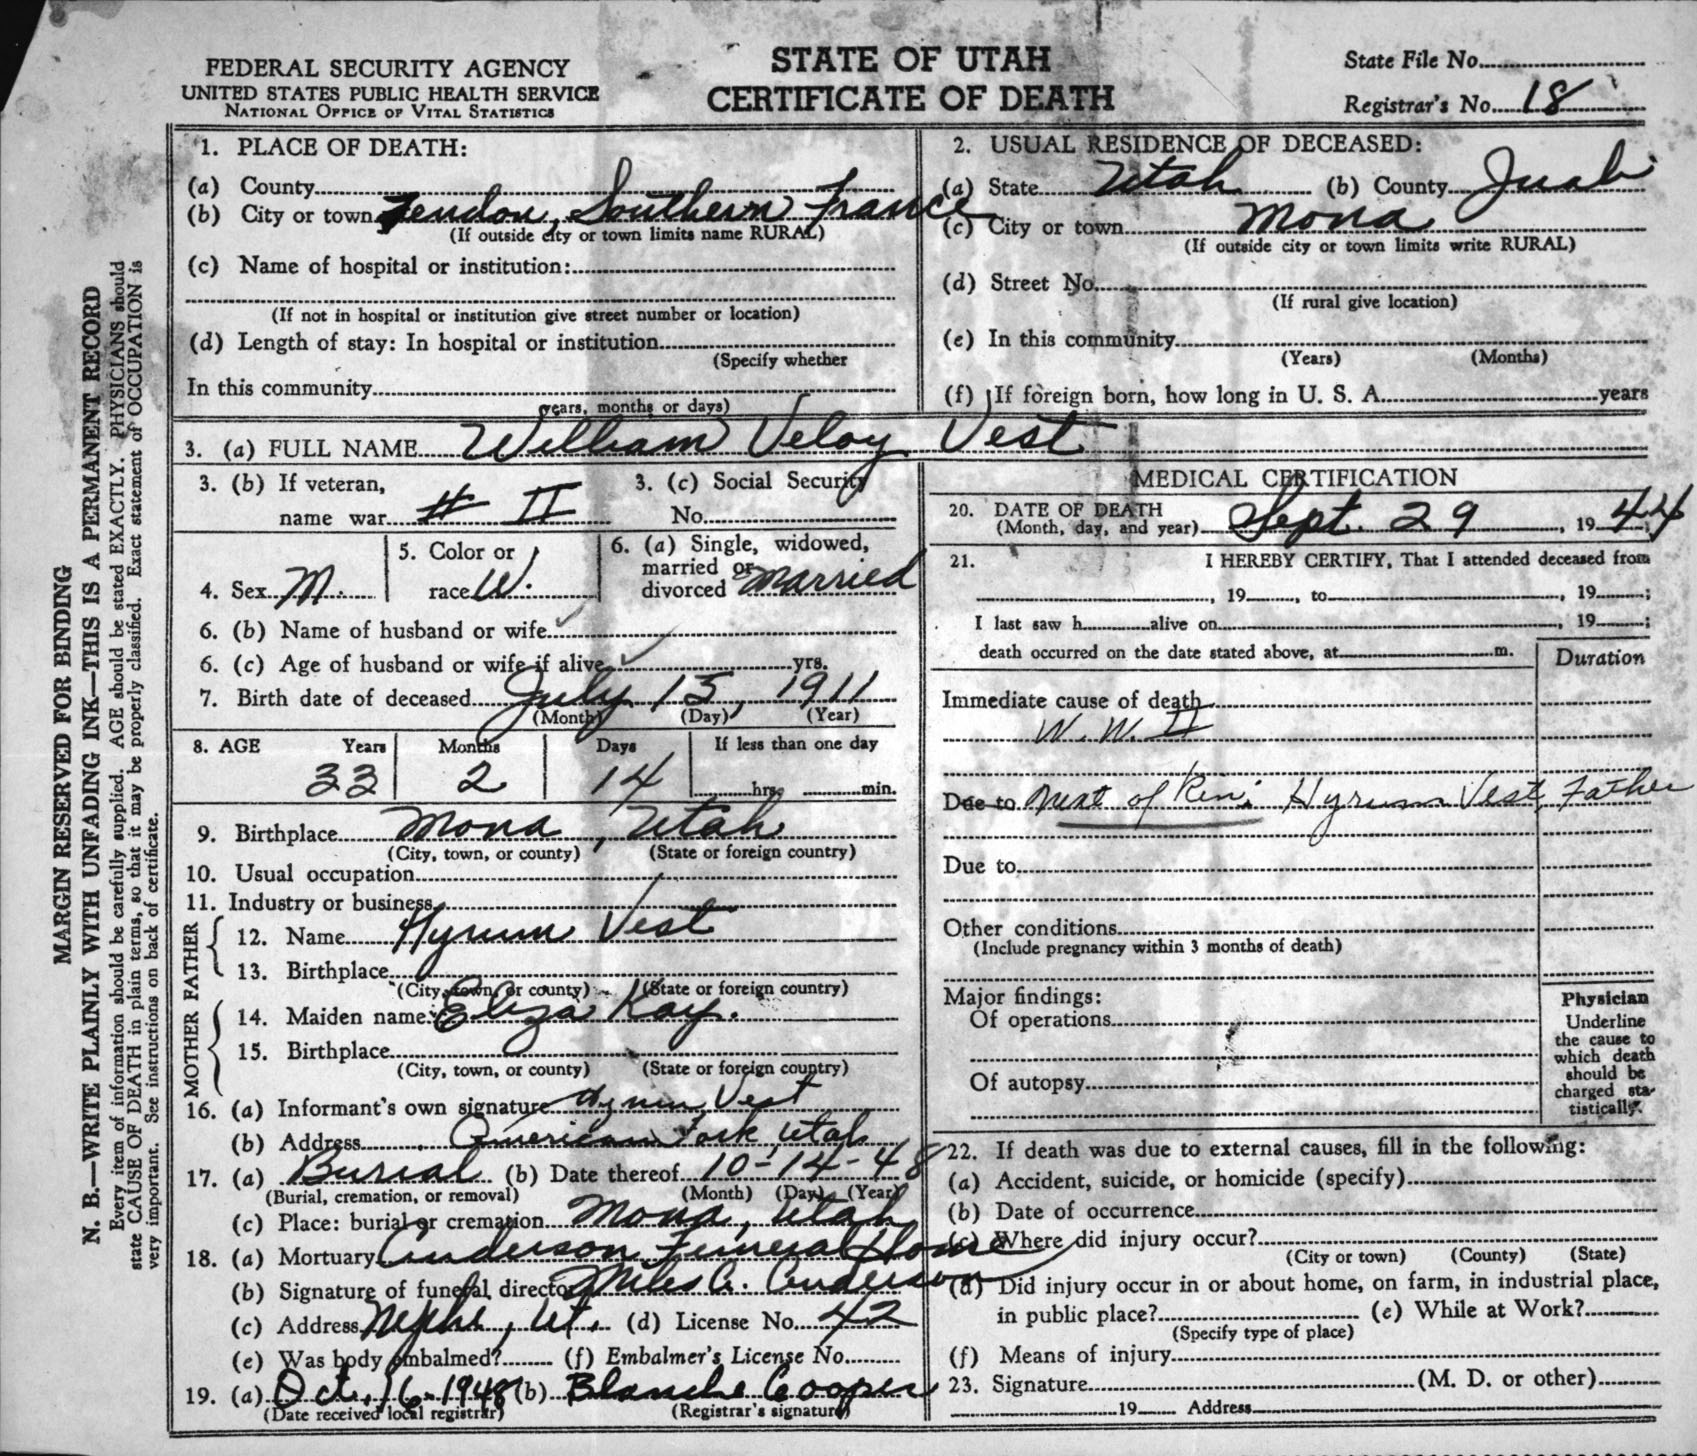 FEDERAL SECURITY AGENCY
UNITED STATES PUBLIC HEALTH SERVICE
NATIONAL OFFICE OF VITAL STATISTICS
STATE OF UTAH
CERTIFICATE OF DEATH
State File No.
Registrar's No. 18
MARGIN RESERVED FOR BINDING
N. B.—WRITE PLAINLY WITH UNFADING INK—THIS IS A PERMANENT RECORD
Every item of information should be carefully supplied. AGE should be stated EXACTLY. PHYSICIANS should
state CAUSE OF DEATH in plain terms, so that it may be properly classified. Exact statement of OCCUPATION is
very important. See instructions on back of certificate.
1. PLACE OF DEATH:
(a) County
(b) City or town Tendon, Southern France
(If outside city or town limits name RURAL)
(c) Name of hospital or institution:
(If not in hospital or institution give street number or location)
(d) Length of stay: In hospital or institution
(Specify whether
In this community
years, months or days)
2. USUAL RESIDENCE OF DECEASED:
(a) State Utah (b) County Juab
(c) City or town Mona
(If outside city or town limits write RURAL)
(d) Street No.
(If rural give location)
(e) In this community
(Years) (Months)
(f) If foreign born, how long in U. S. A. years
3. (a) FULL NAME William Veloy Vest
3. (b) If veteran,
name war # II
3. (c) Social Security
No.
4. Sex M.
5. Color or
race W.
6. (a) Single, widowed,
married or
divorced Married
6. (b) Name of husband or wife
6. (c) Age of husband or wife if alive yrs.
7. Birth date of deceased July 15, 1911
(Month) (Day) (Year)
8. AGE Years Months Days If less than one day
33 2 14 hrs. min.
9. Birthplace Mona, Utah
(City, town, or county) (State or foreign country)
10. Usual occupation
11. Industry or business
FATHER
12. Name Hyrum Vest
13. Birthplace
(City, town, or county) (State or foreign country)
MOTHER
14. Maiden name Eliza Kay.
15. Birthplace
(City, town, or county) (State or foreign country)
16. (a) Informant's own signature Hyrum Vest
(b) Address American Fork, Utah
17. (a) Burial (b) Date thereof 10-14-48
(Burial, cremation, or removal) (Month) (Day) (Year)
(c) Place: burial or cremation Mona, Utah
18. (a) Mortuary Anderson Funeral Home
(b) Signature of funeral director Miles G. Anderson
(c) Address Nephi, Ut. (d) License No. 42
(e) Was body embalmed? (f) Embalmer's License No.
19. (a) Oct. 16-1948 (b) Blanche Cooper
(Date received local registrar) (Registrar's signature)
MEDICAL CERTIFICATION
20. DATE OF DEATH
(Month, day, and year) Sept. 29, 1944;
21. I HEREBY CERTIFY, That I attended deceased from
, 19 , to , 19 ;
I last saw h alive on , 19 ;
death occurred on the date stated above, at m.
Duration
Immediate cause of death
W. W. II
Due to Next of Kin: Hyrum Vest, Father
Due to
Other conditions
(Include pregnancy within 3 months of death)
Major findings:
Of operations
Of autopsy
Physician
Underline
the cause to
which death
should be
charged sta-
tistically.
22. If death was due to external causes, fill in the following:
(a) Accident, suicide, or homicide (specify)
(b) Date of occurrence
(c) Where did injury occur?
(City or town) (County) (State)
(d) Did injury occur in or about home, on farm, in industrial place,
in public place? (e) While at Work?
(Specify type of place)
(f) Means of injury
23. Signature (M. D. or other)
19 Address